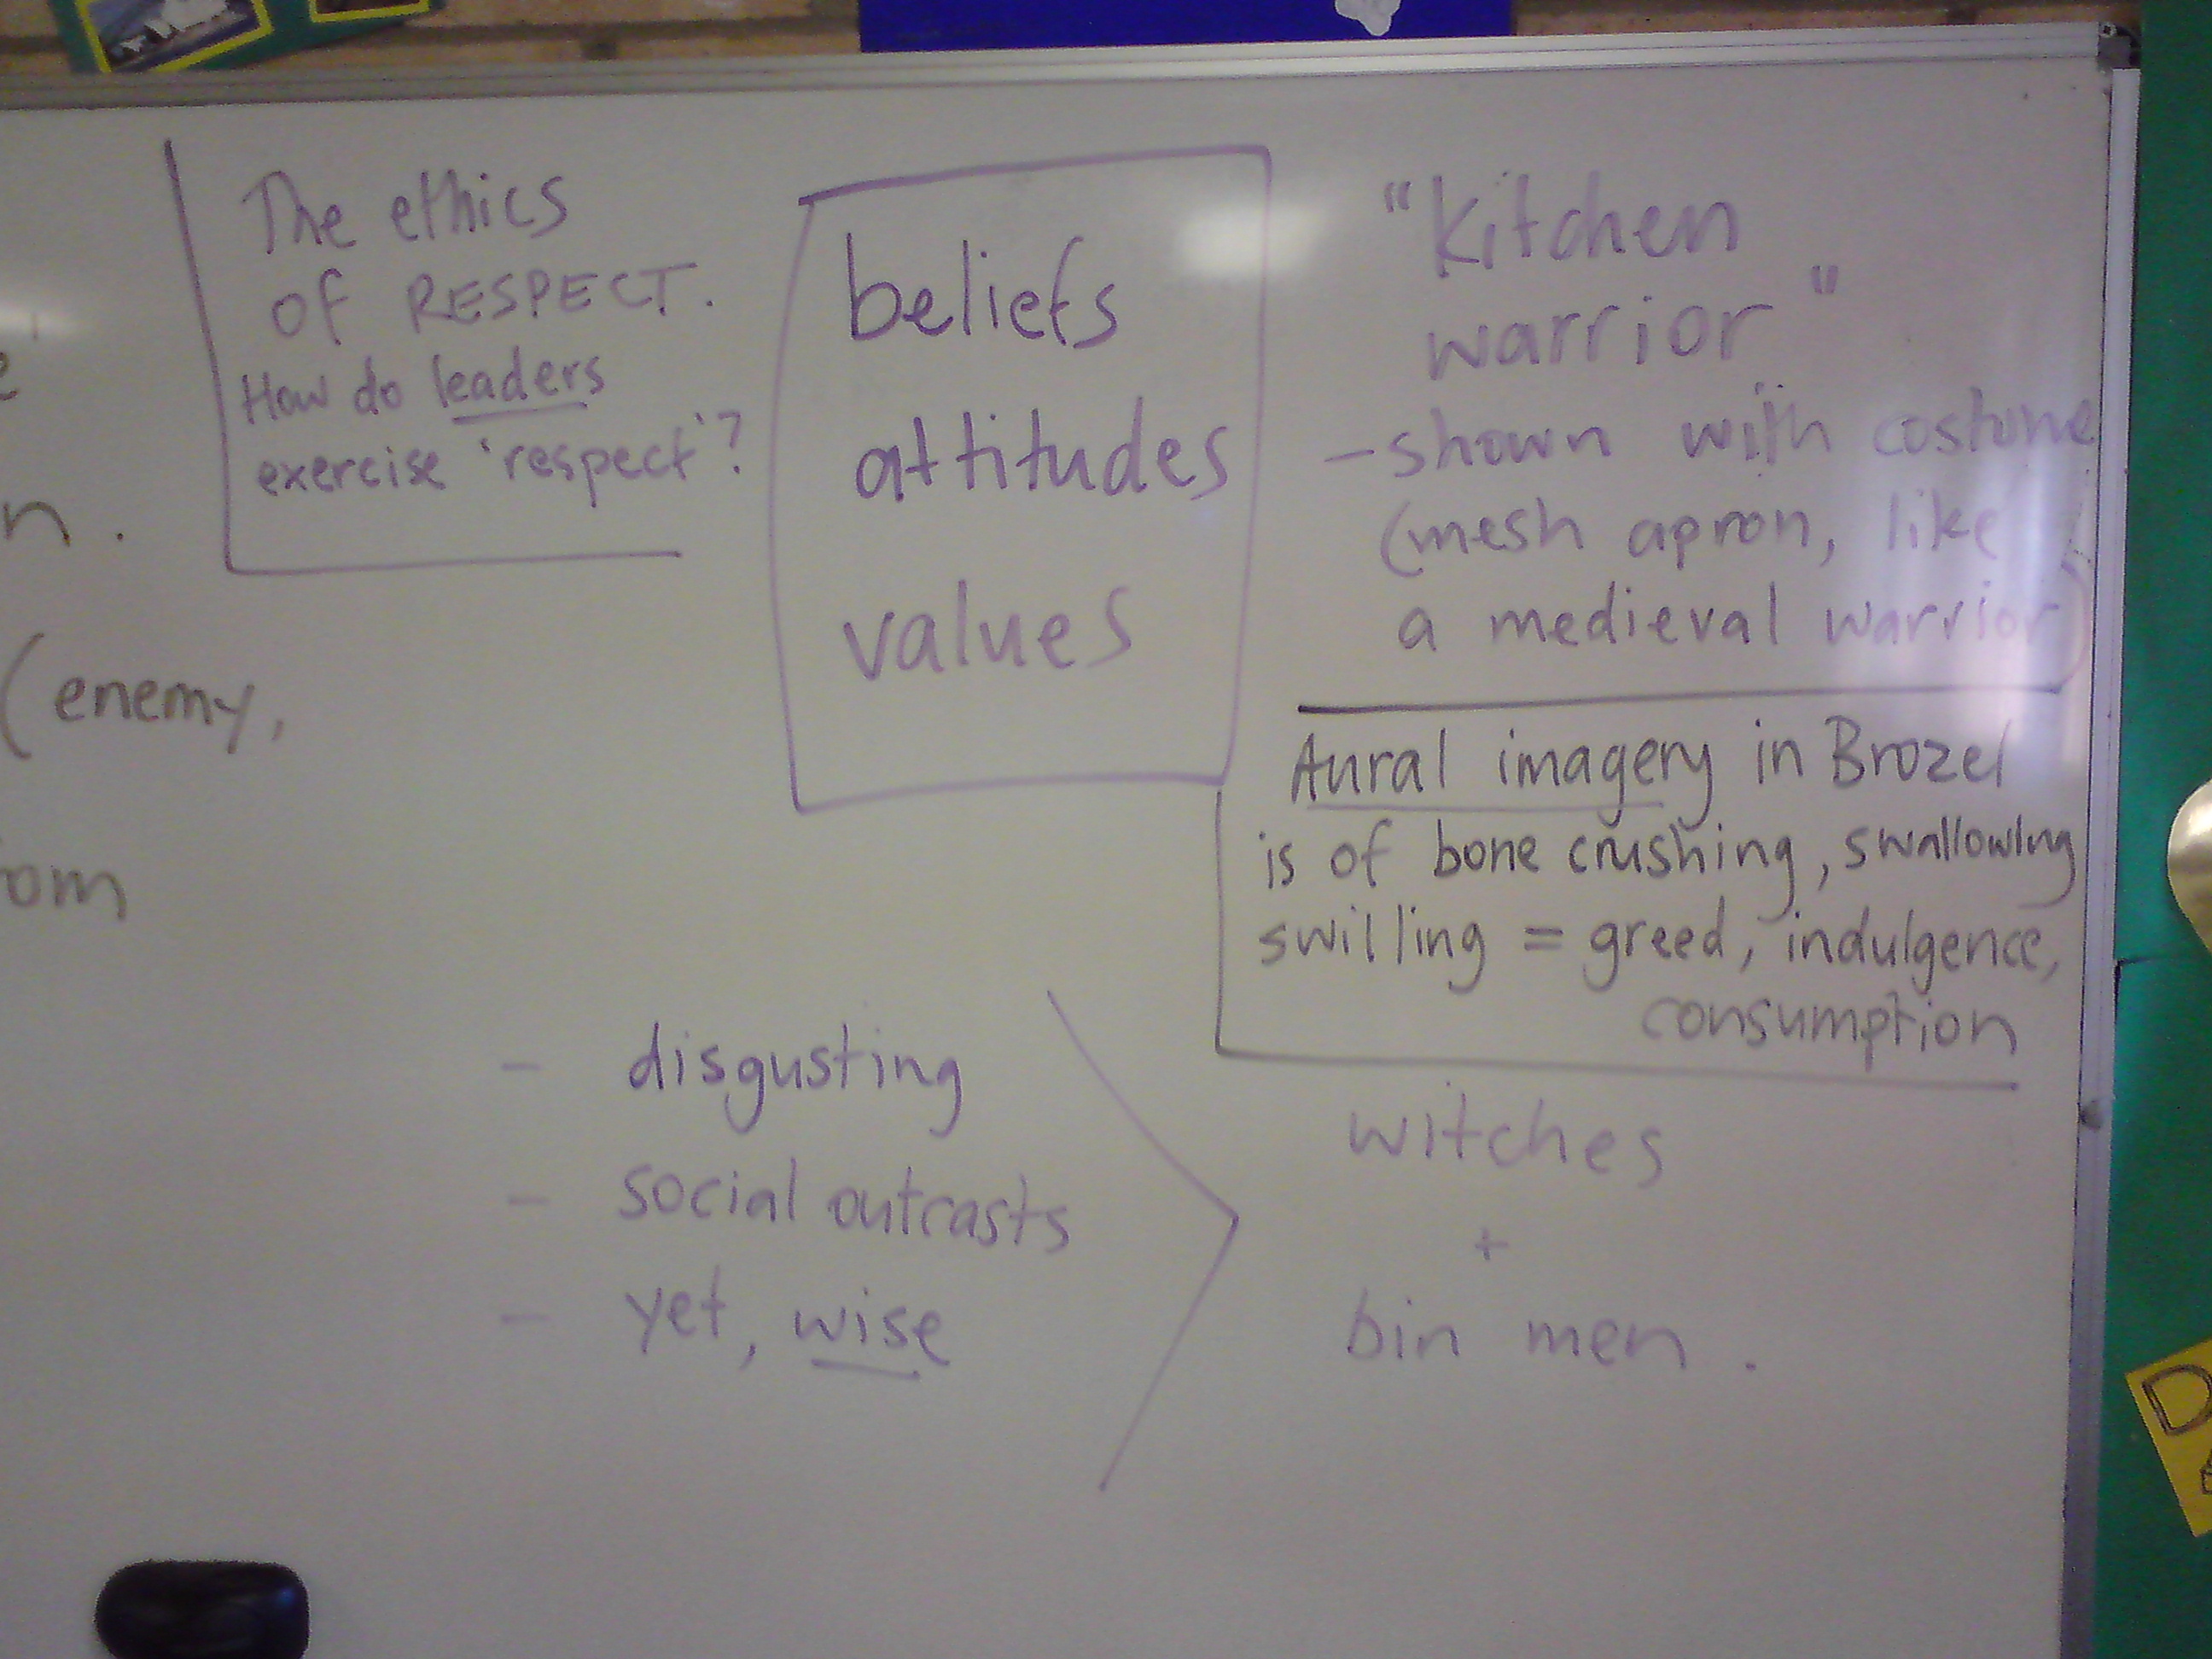 The ethics
of RESPECT.
How do leaders
exercise 'respect'?
beliefs
attitudes
values
"Kitchen
warrior"
- shown with costume
(mesh apron, like
a medieval warrior)
Aural imagery in Brozel
is of bone crushing, swallowing
swilling = greed, indulgence,
consumption
n.
(enemy,
om
- disgusting
- social outcasts
- yet, wise
witches
+
bin men.
D